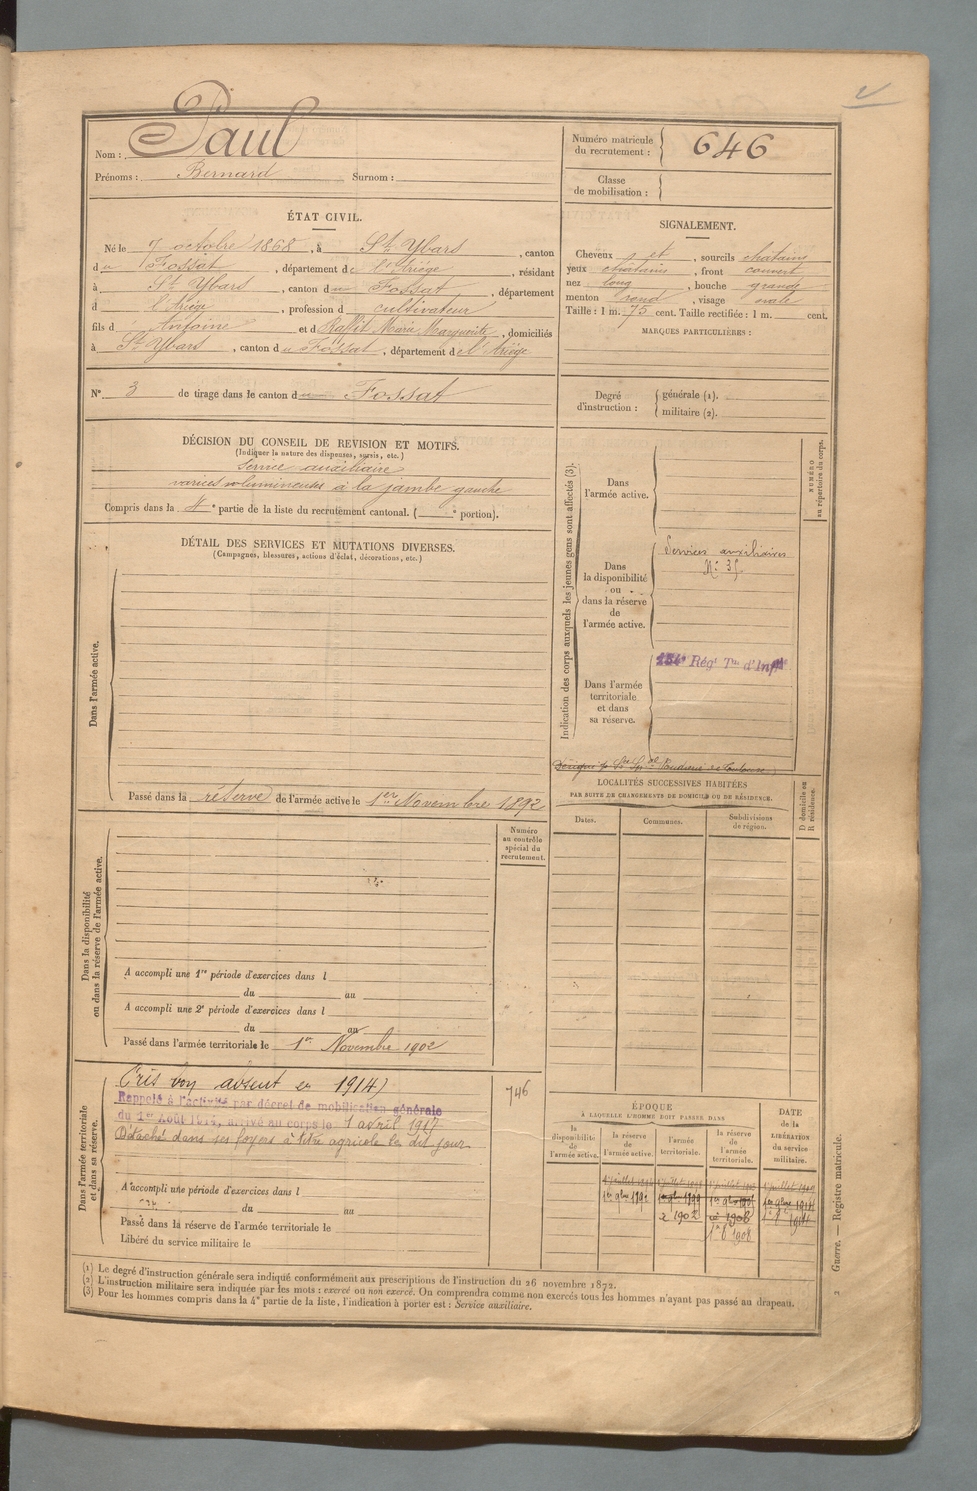 Nom : Paul
Prénoms : Bernard Surnom :
Numéro matricule
du recrutement : 646
Classe
de mobilisation :
ÉTAT CIVIL.
Né le 7 octobre 1868, à St Ybars, canton
du Fossat, département de l'Ariège, résidant
à St Ybars, canton du Fossat, département
d l'Ariège, profession d cultivateur
fils d Antoine et d Marie Marguerite, domiciliés
à St Ybars, canton du Fossat, département de l'Ariège
SIGNALEMENT.
Cheveux et, sourcils chatains
yeux châtains, front couvert
nez long, bouche grande
menton rond, visage ovale
Taille : 1 m. 75 cent. Taille rectifiée : 1 m. cent.
MARQUES PARTICULIÈRES :
N° 3 de tirage dans le canton du Fossat
Degré
d'instruction :
générale (1).
militaire (2).
DÉCISION DU CONSEIL DE REVISION ET MOTIFS.
(Indiquer la nature des dispenses, sursis, etc.)
Service auxiliaire
varices volumineuses à la jambe gauche
Compris dans la 4e partie de la liste du recrutement cantonal. ( e portion).
DÉTAIL DES SERVICES ET MUTATIONS DIVERSES.
(Campagnes, blessures, actions d'éclat, décorations, etc.)
Dans l'armée active.
Passé dans la réserve de l'armée active le 1er Novembre 1892
Indication des corps auxquels les jeunes gens sont affectés (3).
NUMÉRO
au répertoire du corps.
Dans
l'armée active.
Dans
la disponibilité
ou
dans la réserve
de
l'armée active.
Services auxiliaires
Dans l'armée
territoriale
et dans
sa réserve.
134e Régt Tal d'Infie
LOCALITÉS SUCCESSIVES HABITÉES
PAR SUITE DE CHANGEMENTS DE DOMICILE OU DE RÉSIDENCE.
Dates.
Communes.
Subdivisions
de région.
D domicile ou
R résidence.
Numéro
au contrôle
spécial du
recrutement.
Dans la disponibilité
ou dans la réserve de l'armée active.
A accompli une 1re période d'exercices dans l
du au
A accompli une 2e période d'exercices dans l
du au
Passé dans l'armée territoriale le 1er Novembre 1902
746
Dans l'armée territoriale
et dans sa réserve.
(Pris bon absent en 1914)
Rappelé à l'activité par décret de mobilisation générale
du 1er Août 1914, arrivé au corps le 1 avril 1917
Détaché dans ses foyers à titre agricole le dit jour
A accompli une période d'exercices dans l
du au
Passé dans la réserve de l'armée territoriale le
Libéré du service militaire le
ÉPOQUE
À LAQUELLE L'HOMME DOIT PASSER DANS
la
disponibilité
de
l'armée active.
la réserve
de
l'armée active.
l'armée
territoriale.
la réserve
de
l'armée
territoriale.
DATE
de la
LIBÉRATION
du service
militaire.
1902
1908
1914
(1) Le degré d'instruction générale sera indiqué conformément aux prescriptions de l'instruction du 26 novembre 1872.
(2) L'instruction militaire sera indiquée par les mots : exercé ou non exercé. On comprendra comme non exercés tous les hommes n'ayant pas passé au drapeau.
(3) Pour les hommes compris dans la 4e partie de la liste, l'indication à porter est : Service auxiliaire.
Guerre. — Registre matricule.